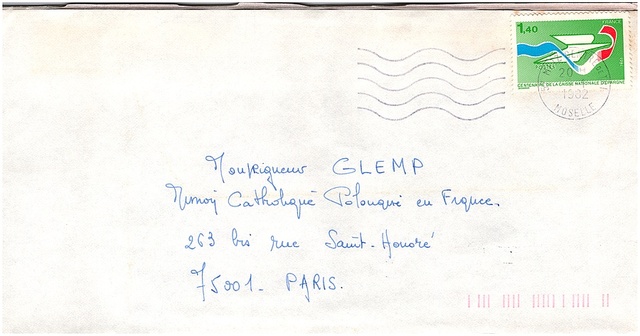 1,40
FRANCE
CENTENAIRE DE LA CAISSE NATIONALE D'EPARGNE
20
1982
MOSELLE
Monseigneur GLEMP
Mission Catholique Polonaise en France.
263 bis rue Saint-Honoré
75001 - PARIS.